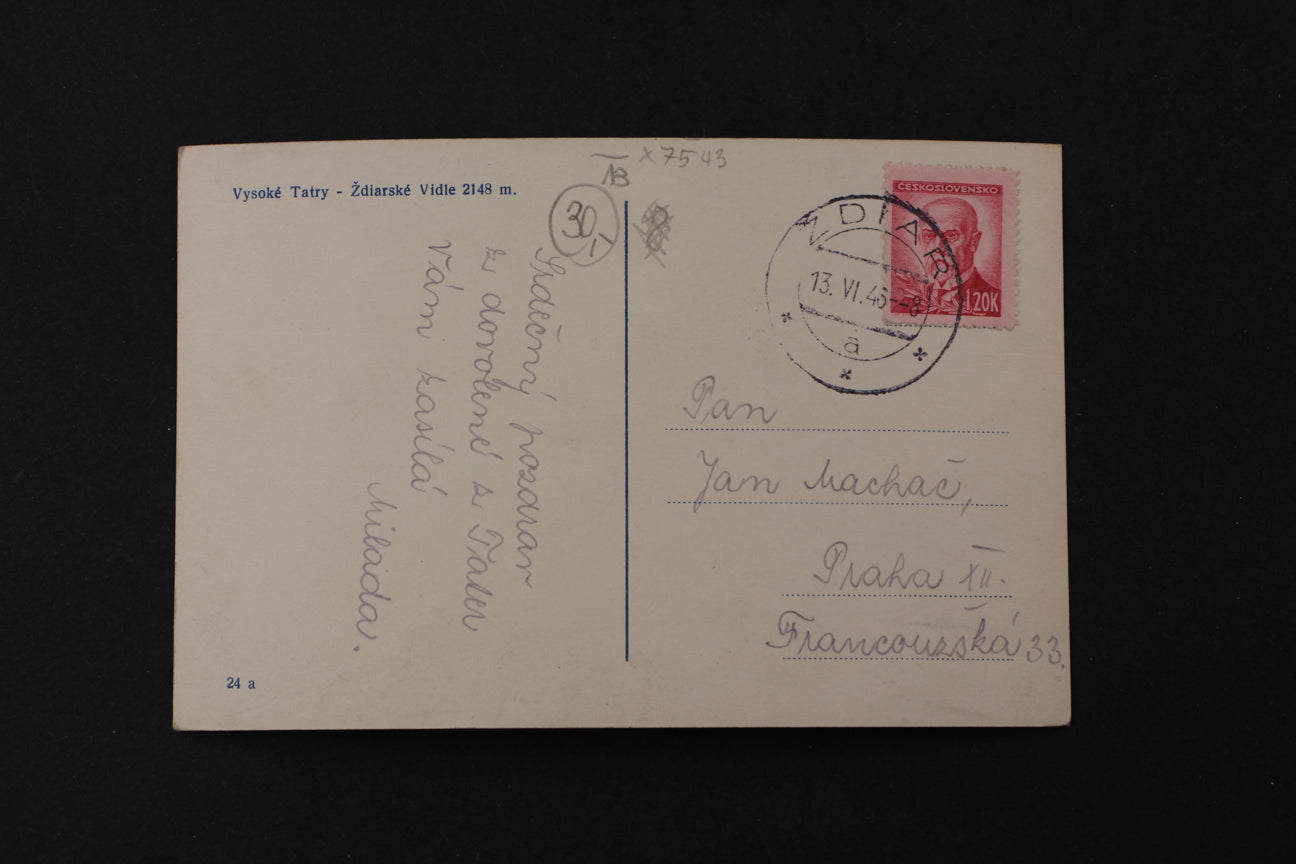 Vysoké Tatry - Ždiarské Vidle 2148 m.
x 7543
1B
30,-
ČESKOSLOVENSKO
1.20K
ŽDIAR
13. VI. 46--8
a
Srdečný pozdrav
z dovolené z Tater
Vám zasílá
Milada.
Pan
Jan Machač,
Praha XII.
Francouzská 33.
24 a